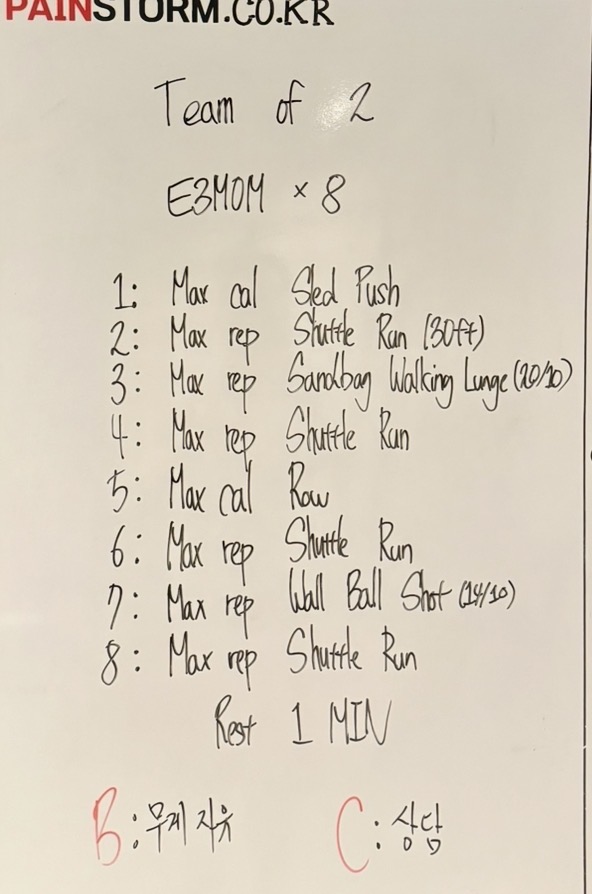 PAINSTORM.CO.KR
Team of 2
E3MOM × 8
1: Max cal Sled Push
2: Max rep Shuttle Run (30ft)
3: Max rep Sandbag Walking Lunge (20/10)
4: Max rep Shuttle Run
5: Max cal Row
6: Max rep Shuttle Run
7: Max rep Wall Ball Shot (14/10)
8: Max rep Shuttle Run
Rest 1 MIN
B: 무게 자유 C: 상담